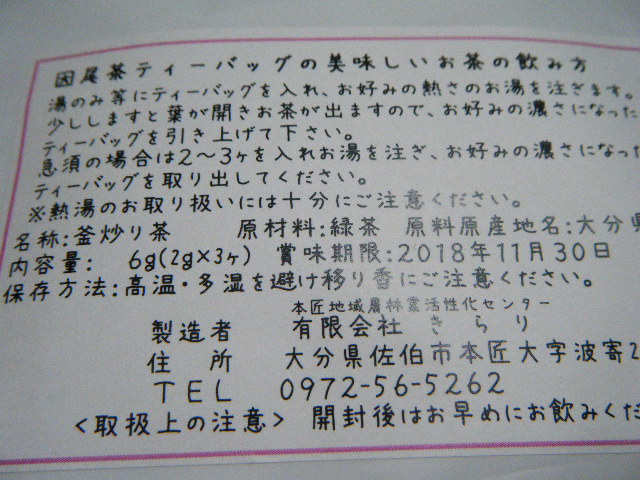 因尾茶ティーバッグの美味しいお茶の飲み方
湯のみ等にティーバッグを入れ、お好みの熱さのお湯を注ぎます。
少ししますと葉が開きお茶が出ますので、お好みの濃さになった
ティーバッグを引き上げて下さい。
急須の場合は2〜3ヶを入れお湯を注ぎ、お好みの濃さになった
ティーバッグを取り出してください。
※熱湯のお取り扱いには十分にご注意ください。
名称:釜炒り茶 原材料:緑茶 原料原産地名:大分県
内容量: 6g(2g×3ヶ) 賞味期限:2018年11月30日
保存方法:高温・多湿を避け移り香にご注意ください。
本匠地域農林業活性化センター
製造者 有限会社 きらり
住 所 大分県佐伯市本匠大字波寄2
TEL 0972-56-5262
<取扱上の注意> 開封後はお早めにお飲みくだ